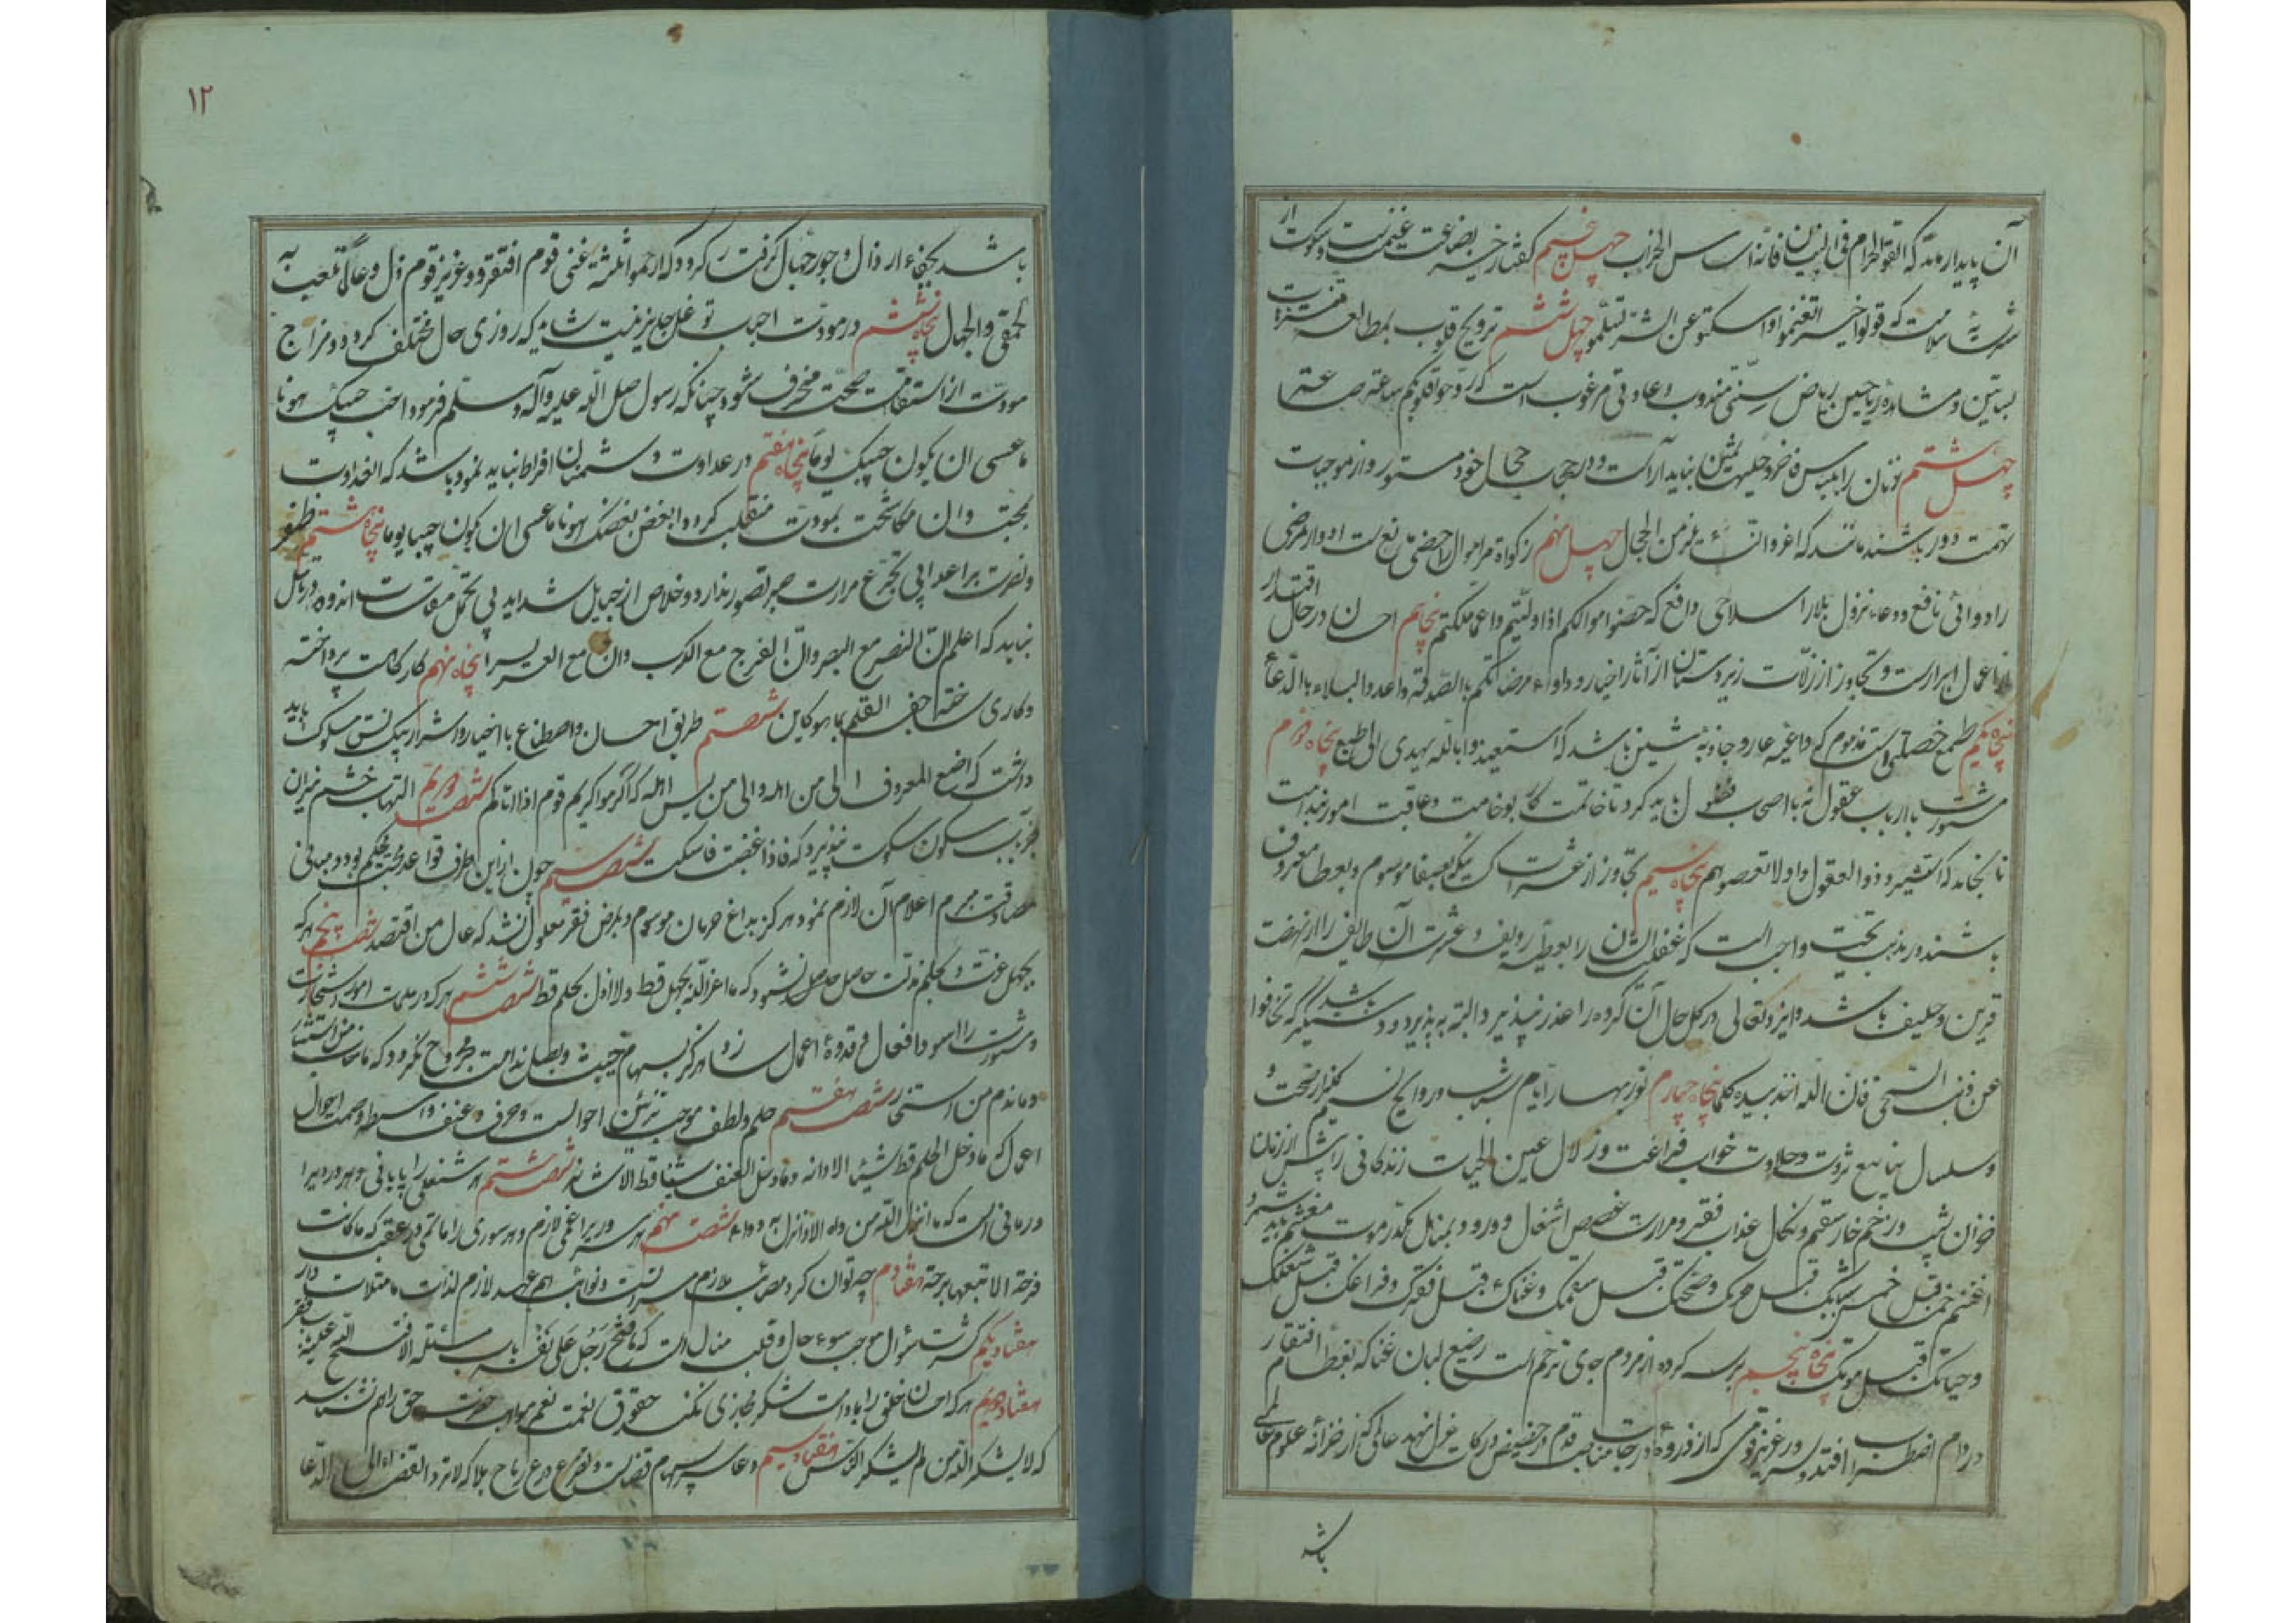 آن پایدار ماند که اتقوا الحرام فی البنیان فانه اساس الخراب چهل پنجم گفتار خیر بضاعت غنیمت و سکوت از
شر سلامت که قولوا خیرا تغنموا واسکتوا عن الشر تسلموا چهل ششم ترویح قلوب بمطالعه متنزهات
بساتین و مشاهده ریاحین ریاض سنتی مندوب و عادتی مرغوب است که روحوا قلوبکم ساعة فساعة
چهل هشتم زنان را بلباس فاخر و حلیهای ثمین نباید آراست و در حجاب حجال خود مستور و از موجبات
تهمت دور باشند مانند که اعروا النساء یلزمن الحجال چهل نهم زکواة مر اموال را حصنی مانع است ادوار مرضی
را دوائی نافع و دعا نزول بلا را سلاحی دافع که حصنوا اموالکم اذا ولیتم واعفوا عما ملکتم پنجاهم احسان در حال اقتدار
از اعمال ابرارست و تجاوز از زلات زیردستان از آثار اخیار و داووا مرضاکم بالصدقة واعدوا للبلاء بالدعا
پنجاه یکم طمع خصلتی است مذموم که داعیه عار و جاذبه شین باشد که استعیذوا بالله یهدی الی طبع پنجاه دوم
مشورت با ارباب عقول نه با اصحاب فضول باید کرد تا خاتمت کار بوخامت و عاقبت امور بندامت
نانجامد که استشیروا ذوالعقول ولا تعصوهم پنجاه سیم تجاوز از عثرات کسانیکه بصفا موسوم و بعطا معروف
باشند در مذهب تحیت واجب است که غفلت ایشان را بعطیه ردیف و عثرت آن طایفه را از نهضت
قرین و حلیف باشد و ایزد تعالی در کل حال آن گروه را عذر نپذیرد البته بپذیرد و دستگیر باشد که تجافوا
عن ذنب السخی فان الله اخذ بیده کلما پنجاه چهارم نور بهار ایام شباب و روایح نسیم گلزار صحت و
سلسال ینابیع ثروت و حلاوت خواب فراغت و زلال عین الحیات زندگانی را پیش از زمان
خزان شیب و زخم خار سقم و نکال عذاب فقر و مرارت غصص اشغال و ورود بمنهل مکدر موت مغتنم باید شمرد
اغتنم خمسا قبل خمس شبابک قبل هرمک وصحتک قبل سقمک وغناک قبل فقرک وفراغک قبل شغلک
وحیاتک قبل موتک پنجاه پنجم بر سه گروه از مردم جای ترحم است رضیع لبان غنا که بفطام افتقار
در دام اضطرار افتد و سرور عزیز قومی که از ذروهٔ درجات مناصب قدم در حضیض درکات عزل نهد عالمی که از خزانه علوم
باشد
۱۲
باشد بجفاء ارذال و جور جهال گرفتار گردد که ارحموا ثلثة غنی قوم افتقر وعزیز قوم ذل وعالما تلعب به
الحمقی والجهال پنجاه ششم در مودت احباب توغل جایز نیست شاید که روزی حال مختلف گردد و مزاج
مودت از استقامت صحت منحرف شود چنانکه رسول صلی الله علیه وآله وسلم فرمود احبب حبیبک هونا
ما عسی ان یکون حبیبک یوما پنجاه هفتم در عداوت دشمنان افراط نباید نمود باشد که العداوت
بمحبت و آن مکاشحت بمودت منقلب گردد وابغض بغیضک هونا ما عسی ان یکون حبیبا یوما پنجاه هشتم ظفر
و نصرت بر اعدا بی تجرع مرارت صبر تصور ندارد و خلاص از حبایل شداید بی تحمل مقاسات اندوه در باطل
نیاید که اعلم ان النصر مع الصبر وان الفرج مع الکرب وان مع العسر یسرا پنجاه نهم کار کاینات پرداخته
و کاری ساخته جف القلم بما هو کاین شصتم طریق احسان و اصطناع با اخیار و اشرار بیک نسق مسلوک باید
داشت که اصنع المعروف الی من اهله والی من لیس اهله که اکرموا کریم قوم اذا اتاکم شصت دویم التهاب خشم نیران
غضب سکون بسکوت پذیرد که فاذا غضبت فاسکت شصت سیم چون از این طرف قواعد محبت محکم بود و مبانی
صداقت مبرم اعلام آن لازم نمود هرگز بداغ حرمان موسوم و بمرض فقر معلول نشد که عال من اقتصد شصت پنجم هر که
بجهل عزت و بحلم مذلت حاصل نشود که ما اعز الله بجهل قط ولا اذل بحلم قط شصت ششم هر که در ملمات امور استخارت
و مشورت را اسوهٔ افعال و قدوهٔ اعمال سازد هرگز بسهام خیبت و بنصل ندامت مجروح نگردد که ما خاب من استشار
وما ندم من استخار شصت هفتم حلم و لطف موجب تزئین احوالست و خرق و عنف واسطه وصمت احوال
اعمال که ما دخل الحلم قط شیئا الا زانه وما دخل العنف شیئا قط الا شانه شصت هشتم هر شغلی را پایانی و هر دردی را
درمانی است که ما انزل الله من داء الا انزل به دواء شصت نهم هر سروری را غمی لازم و هر سوری را ماتمی در عقب که ما کانت
فرحة الا تبعها برحة هفتادم چه توان کرد مصائب ملازم مسراتست و نوائب لازم لذات
هفتاد یکم کثرت سؤال موجب سوء حال و قلت منال است که ما فتح رجل علی نفسه باب مسئلة الا فتح الله علیه باب فقر
هفتاد دویم هر که احسان خلق را بادات شکر مجازی نکند حقوق نعمت نعم مواهب حق را هم نشناسد
که لا یشکر الله من لم یشکر الناس هفتاد سیم دعا سپر سهام قضاست و تضرع درع رماح بلا که لا ترد القضاء الا الدعا